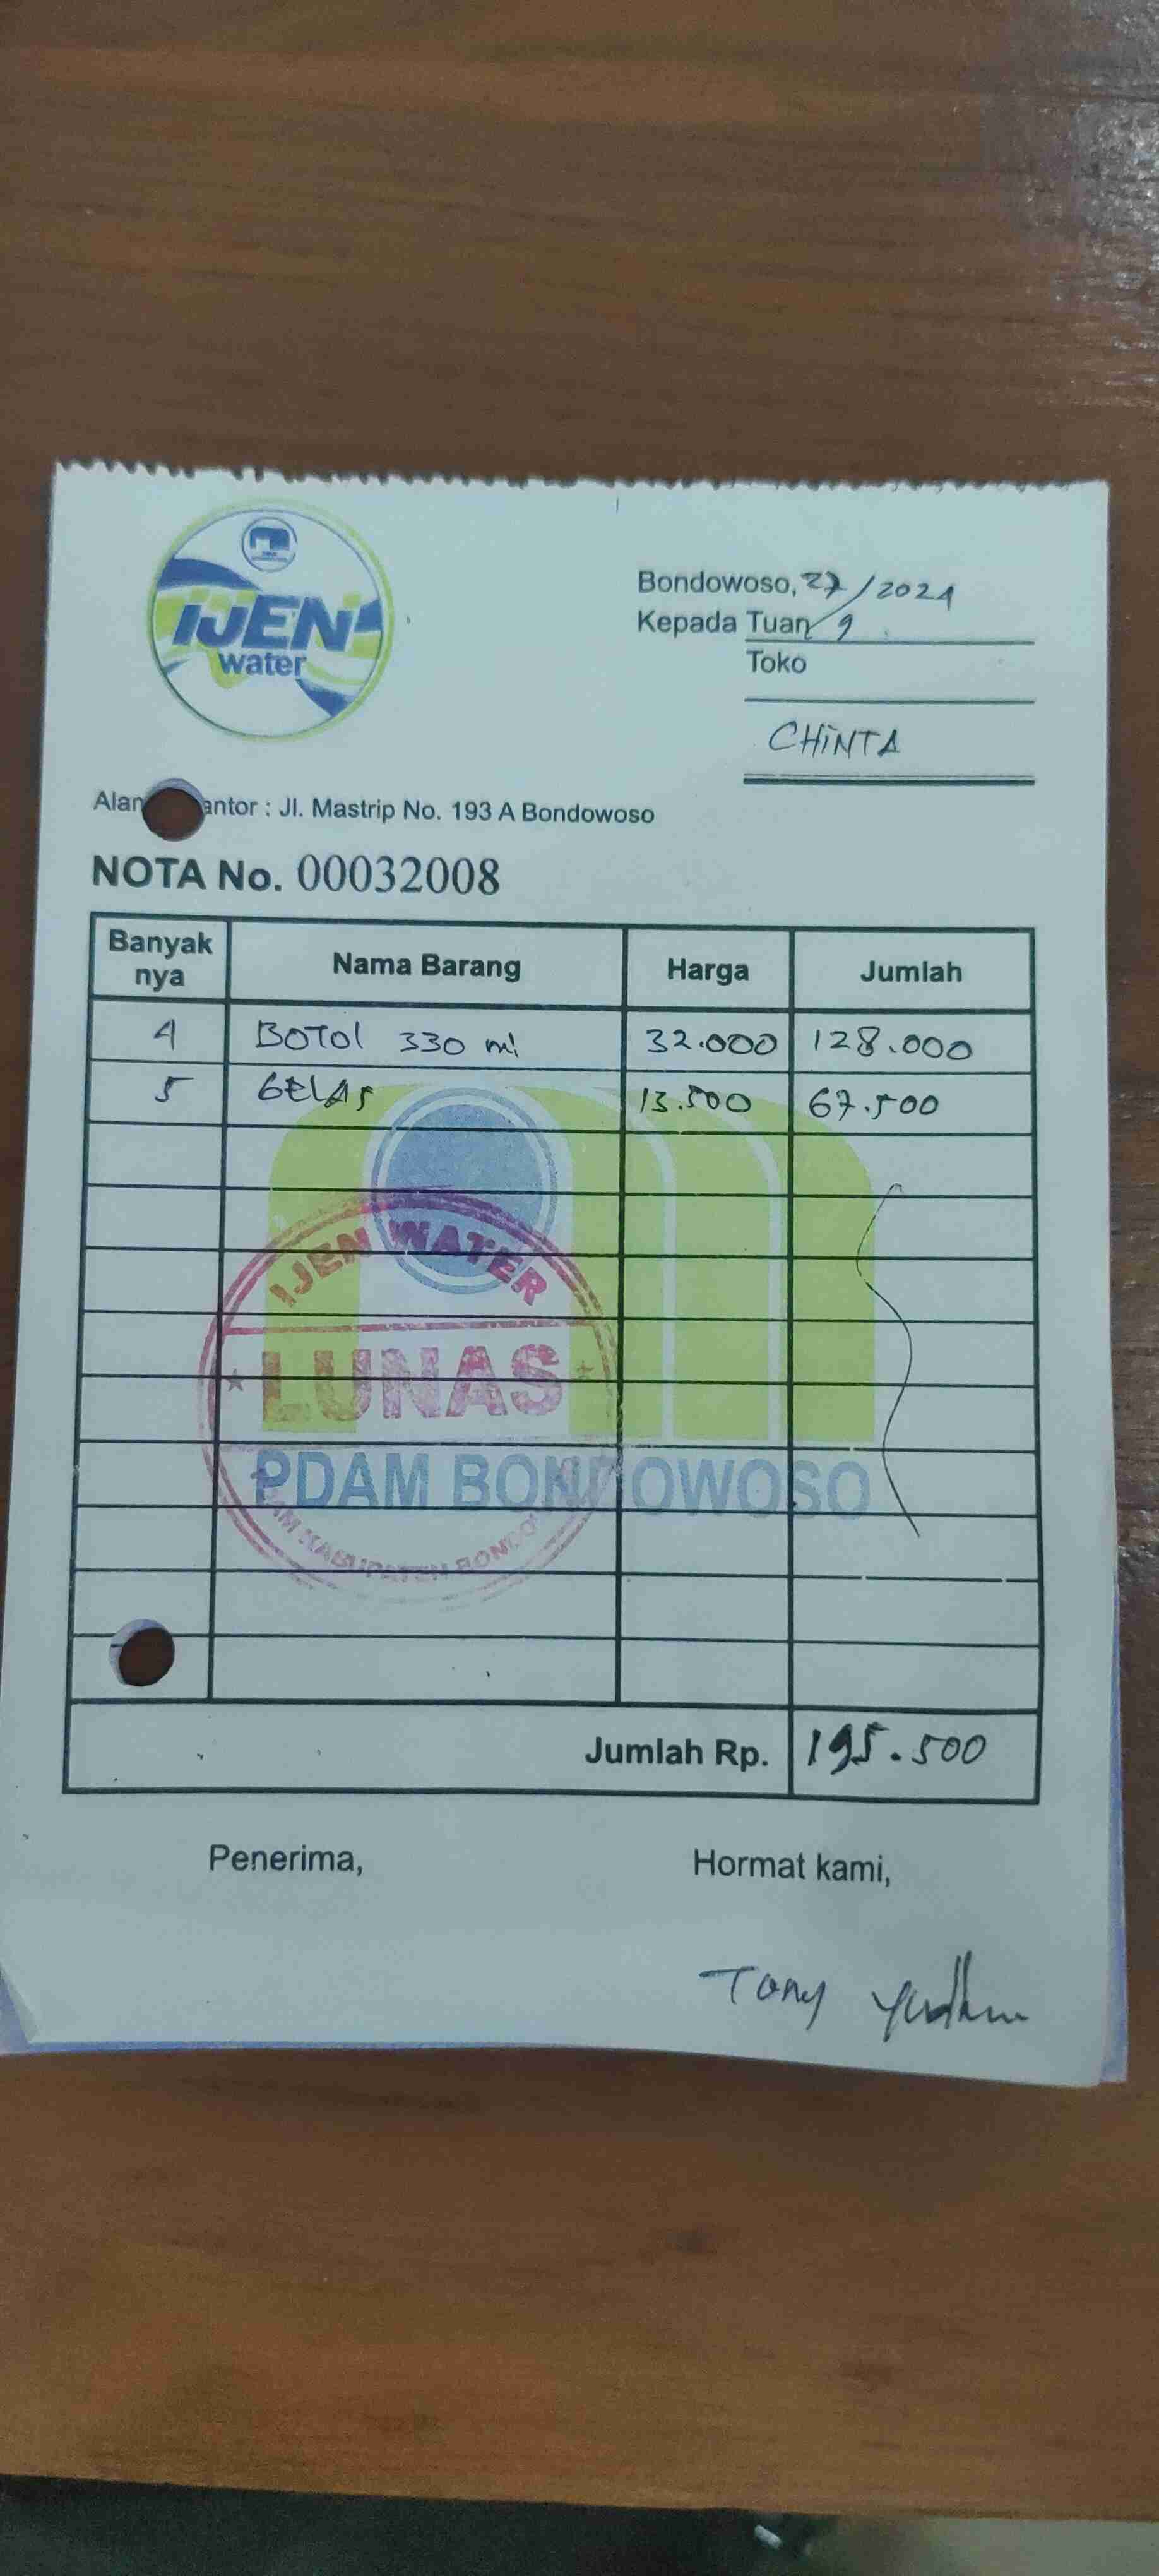 IJEN
water
Bondowoso, 27/9 2024
Kepada Tuan
Toko
CHINTA
Alan antor : Jl. Mastrip No. 193 A Bondowoso
NOTA No. 00032008
Banyak nya Nama Barang Harga Jumlah
4 BOTOL 330 ml 32.000 128.000
5 GELAS 13.500 67.500
IJEN WATER
LUNAS
PDAM BONDOWOSO
Jumlah Rp. 195.500
Penerima, Hormat kami,
Tony